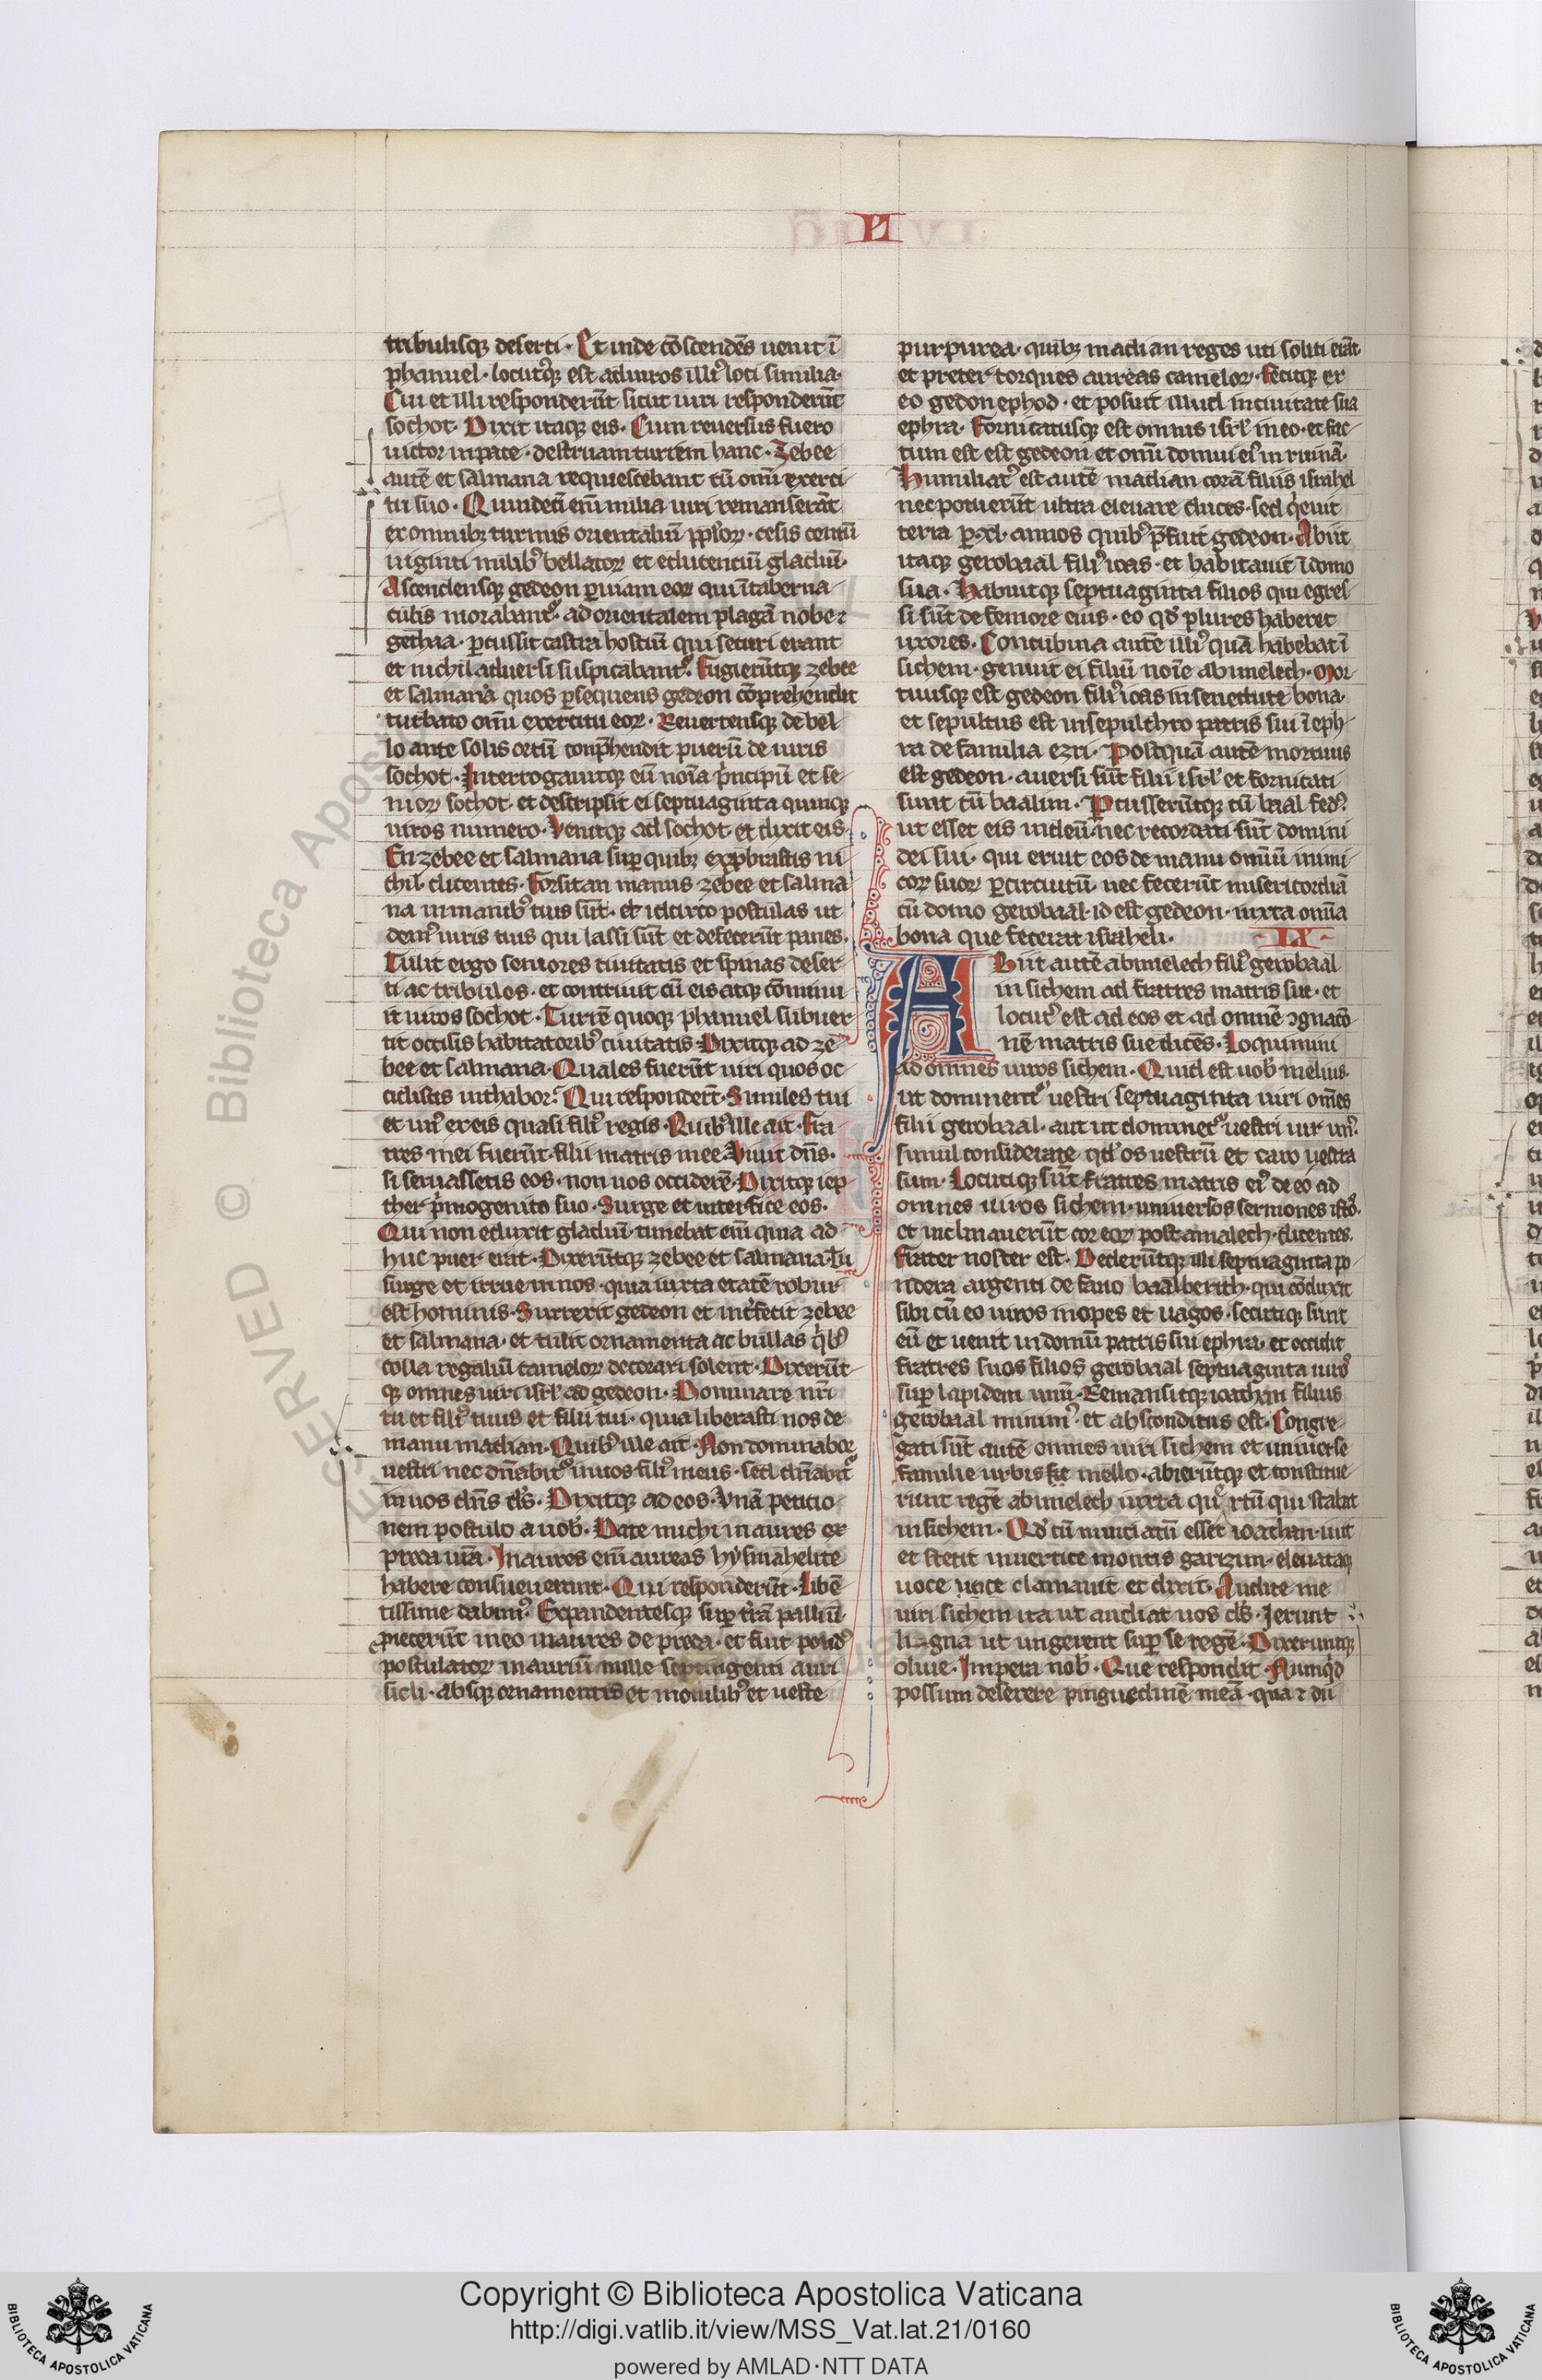 L
tribulisq; deserti. Et inde cōscendēs uenit ī
phanuel. locutusq; est ad uiros illiꝰ loci similia.
Cui et illi responderūt sicut uiri responderūt
sochot. Dixit itaq; eis. Cum reuersus fuero
uictor in pace. destruam turrem hanc. Zebee
autē et salmana requiescebant cū omī exerci
tu suo. Quindecī enī milia uiri remanserāt
ex omnibꝫ turmis orientaliū pplorꝫ. cesis centū
uiginti milibꝰ bellatorꝫ et educentiū gladiū.
Ascendensq; gedeon ꝑ uiam eorꝫ qui ī taberna
culis morabantᷣ. ad orientalem plagā nobe ⁊
gethaa. ꝑcussit castra hostiū qui securi erant
et nichil aduersi suspicabantᷣ. Fugierūtq; zebee
et salmana quos ꝑsequens gedeon cōprehendit
turbato omī exercitu eorꝫ. Reuertensq; de bel
lo ante solis ortū conp̄hendit puerū de uiris
sochot. Interrogauitq; eū noīa pͥncipū et se
niorꝫ sochot. et descripsit ei septuaginta quinq;
uiros numero. Venitq; ad sochot et dixit eis.
En zebee et salmana sup̱ quibꝫ exp̱brastis mi
chi. dicentes. Forsitan manus zebee et salma
na in manibꝰ tuis sūt. et idcirco postulas ut
demꝰ uiris tuis qui lassi sūt et defecerūt panes.
Tulit ergo seniores ciuitatis et spinas deser
ti ac tribulos. et contriuit cū eis atq; cōminu
it uiros sochot. Turrē quoq; phanuel subuer
tit occisis habitatoribꝰ ciuitatis. Dixitq; ad ze
bee et salmana. Quales fuerūt uiri quos oc
cidistis in thabor? Qui respondert̄. Similes tui
et unꝰ ex eis quasi filiꝰ regis. Quibꝰ ille ait. Fra
tres mei fuerūt. filii matris mee. Viuit dn̄s.
si seruassetis eos. non uos occiderē. Dixitq; iep
ther pͥmogenito suo. Surge et interfice eos.
Qui non eduxit gladiū. timebat enī quia ad
huc puer erat. Dixerūtq; zebee et salmana. Tu
surge et irrue in nos. quia iuxta etatē robur
est hominis. Surrexit gedeon et int̾fecit zebee
et salmana. et tulit ornamenta ac bullas qͥbꝰ
colla regaliū camelorꝫ decorari solent. Dixerūt
q; omnes uiri isrl̄ ad gedeon. Dominare nr̄i
tu et filiꝰ tuus et filii tui. quia liberasti nos de
manu madian. Quibꝰ ille ait. Non dominabor
uestri nec dn̄abitᷣ in uos filiꝰ meus. sed dn̄abitᷣ
in uos dn̄s ds̄. Dixitq; ad eos. Vnā petitio
nem postulo a uob̄. Date michi inaures ex
preda ur̄a. Inaures enī aureas hysmahelite
habere consueuerant. Qui responderūt. Libē
tissime dabimꝰ. Expandentesq; sup̱ tr̄ā palliū
proiecerūt in eo inaures de preda. et fuit pondꝰ
postulatorꝫ inauriū mille septingenti auri
sicli. absq; ornamentis et monilibꝰ et ueste
purpurea. quibꝫ madian reges uti soliti erāt
et preter torques aureas camelorꝫ. Fecitq; ex
eo gedon ephod. et posuit illud in ciuitate sua
ephra. Fornicatusq; est omnis isrl̄ in eo. et fac
tum est est gedeon et omī domui eiꝰ in ruinā.
Humiliatꝰ est autē madian corā filiis israhel
nec potuerūt ultra eleuare ceruices. sed qͥeuit
terra ꝑ xl. annos quibꝰ p̄fuit gedeon. Abiit
itaq; gerobaal filiꝰ ioas. et habitauit ī domo
sua. Habuitq; septuaginta filios qui egres
si sūt de femore eius. eo qd̓ plures haberet
uxores. Concubina autē illiꝰ quā habebat ī
sichem. genuit ei filiū noīe abimelech. Mor
tuusq; est gedeon filiꝰ ioas in senectute bona.
et sepultus est in sepulchro patris sui ī eph
ra de familia ezri. Postquā autē mortuus
est gedeon. auersi sūt filii isrl̄ et fornicati
sunt cū baalim. Ꝑcusserūtq; cū baal fedꝰ
ut esset eis in deū. nec recordati sūt domini
dei sui. qui eruit eos de manu omīū inimi
corꝫ suorꝫ ꝑ circuitū. nec fecerūt misericordiā
cū domo gerobaal. id est gedeon. iuxta omīa
bona que fecerat israheli. IX
Abiit autē abimelech filiꝰ gerobaal
in sichem ad fratres matris sue. et
locutꝰ est ad eos et ad omnē ꝯgnacō
nē matris sue dicēs. Loquimini
ad omnes uiros sichem. Quid est uob̄ melius.
ut dominentᷣ uestri septuaginta uiri omēs
filii gerobaal. aut ut dominetᷣ uestri uir unꝰ.
simul considerate. qd̓ os uestrū et caro uestra
sum. Locutiq; sūt fratres matris eiꝰ de eo ad
omnes uiros sichem. uniuersos sermones istoꝰ.
et inclinauerūt cor eorꝫ post amalech. dicentes.
Frater noster est. Dederūtq; illi septuaginta po
ndera argenti de fano baalberith. qui cōduxit
sibi cū eo uiros inopes et uagos. secutiq; sunt
eū et uenit in domū patris sui ephra. et occidit
fratres suos filios gerobaal septuaginta uiroꝰ
sup̱ lapidem unū. Remansitq; ioathan filius
gerobaal minimꝰ. et absconditus est. Congre
gati sūt autē omnes uiri sichem et uniuerse
familie urbis mello. abierūtq; et constitue
runt regē abimelech iuxta
in sichem. Qd̓ cū nunciatū esset ioathan. iuit
et stetit in uertice montis garizim. eleuataq;
uoce clamauit et dixit. Audite me
uiri sichem ita ut audiat uos ds̄. Ierunt
ligna ut ungerent sup̱ se regē. Dixeruntq;
oliue. Impera nob̄. Que respondit. Nunqͥd
possum deserere pinguedinē meā. qua ⁊ dii
Copyright © Biblioteca Apostolica Vaticana
http://digi.vatlib.it/view/MSS_Vat.lat.21/0160
powered by AMLAD·NTT DATA
BIBLIOTECA APOSTOLICA VATICANA
BIBLIOTECA APOSTOLICA VATICANA
ESERVED © Biblioteca Apos